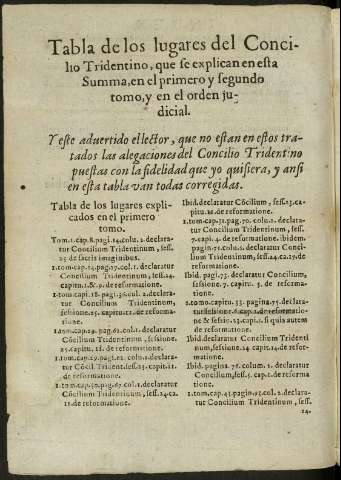 Tabla de los lugares del Conci-
lio Tridentino, que se explican en esta
Summa, en el primero y segundo
tomo, y en el orden ju-
dicial.
Y este aduertido el lector, que no estan en estos tra-
tados las alegaciones del Concilio Tridentino
puestas con la fidelidad que yo quisiera, y ansi
en esta tabla van todas corregidas.
Tabla de los lugares expli-
cados en el primero
tomo.
Tom.1.cap.8.pagi.14.colu.2.declara-
tur Concilium Tridentinum, sess.
25 de sacris imaginibus.
1.tom.cap.14.pag.37.col.1.declaratur
Concilium Tridentinum, sess.24.
capitu.1.&.9.de reformatione.
1.tom.capi.18.pag.36.col.2.declara-
tur Concilium Tridentinum,
sessione.25.capitu.12.de reforma-
tione.
1.tom.cap.29.pag.62.col.1.declaratur
Cócilium Tridentinum, sessione.
25.capitu.18.de reformatione.
1.tom.cap.29.pag.62.colu.1.declara-
tur Cócil Trident.sess.23.capit.11.
de reformatione.
1.tom.cap.30.pag.67.col.1.declaratur
Concilium Tridentinum, sess.24.ca.
12.de reformatione.
Ibid.declaratur Cócilium, sess.23.ca-
pitu.12.de reformatione.
1.tom.cap.31.pag.70.col.1.declara-
tur Concilium Tridentinum, sess.
7.capi.4.de reformatione. ibidem.
pagin.71.colu.2.declaratur Conci-
lium Tridentinum, sess.24.ca.17.de
reformatione.
Ibid pagi.73.declaratur Concilium,
sessione.7.capit.5.de reformatio-
ne.
1.tomo.capitu.33.pagina.75.declara-
tur
& sessio.23.capit.1.si quis autem
de reformatione.
Ibid declaratur Concilium Tridenti
num, sessione.14.capit.14.de refor-
matione.
Ibid. pagina.76.colum.1.declara-
tur Concilium, sess.5.cap.1.de reforma
tione.
1.tom.cap.43.pagin.93.col.2.declara-
tur Concilium Tridentinum, sess.
24.